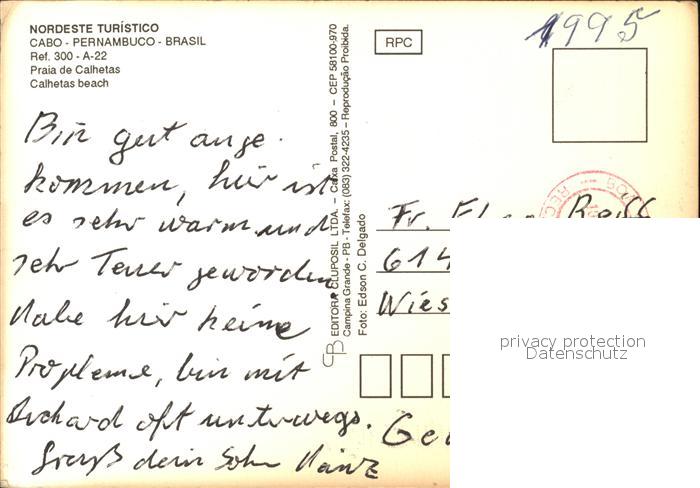 NORDESTE TURÍSTICO
CABO - PERNAMBUCO - BRASIL
Ref. 300 - A-22
Praia de Calhetas
Calhetas beach
Bin gut ange
kommen, hier ist
es sehr warm und
sehr Teuer geworden
Habe hier keine
Propleme, bin mit
Richard oft unterwegs.
Gruß dein Sohn Heinz
EDITORA CLUPOSIL LTDA. – Caixa Postal, 800 – CEP 58100-970
Campina Grande - PB - Telefax: (083) 322-4235 – Reprodução Proibida.
Foto: Edson C. Delgado
RPC
1995
Fr.
614
Wies
Ger
privacy protection
Datenschutz